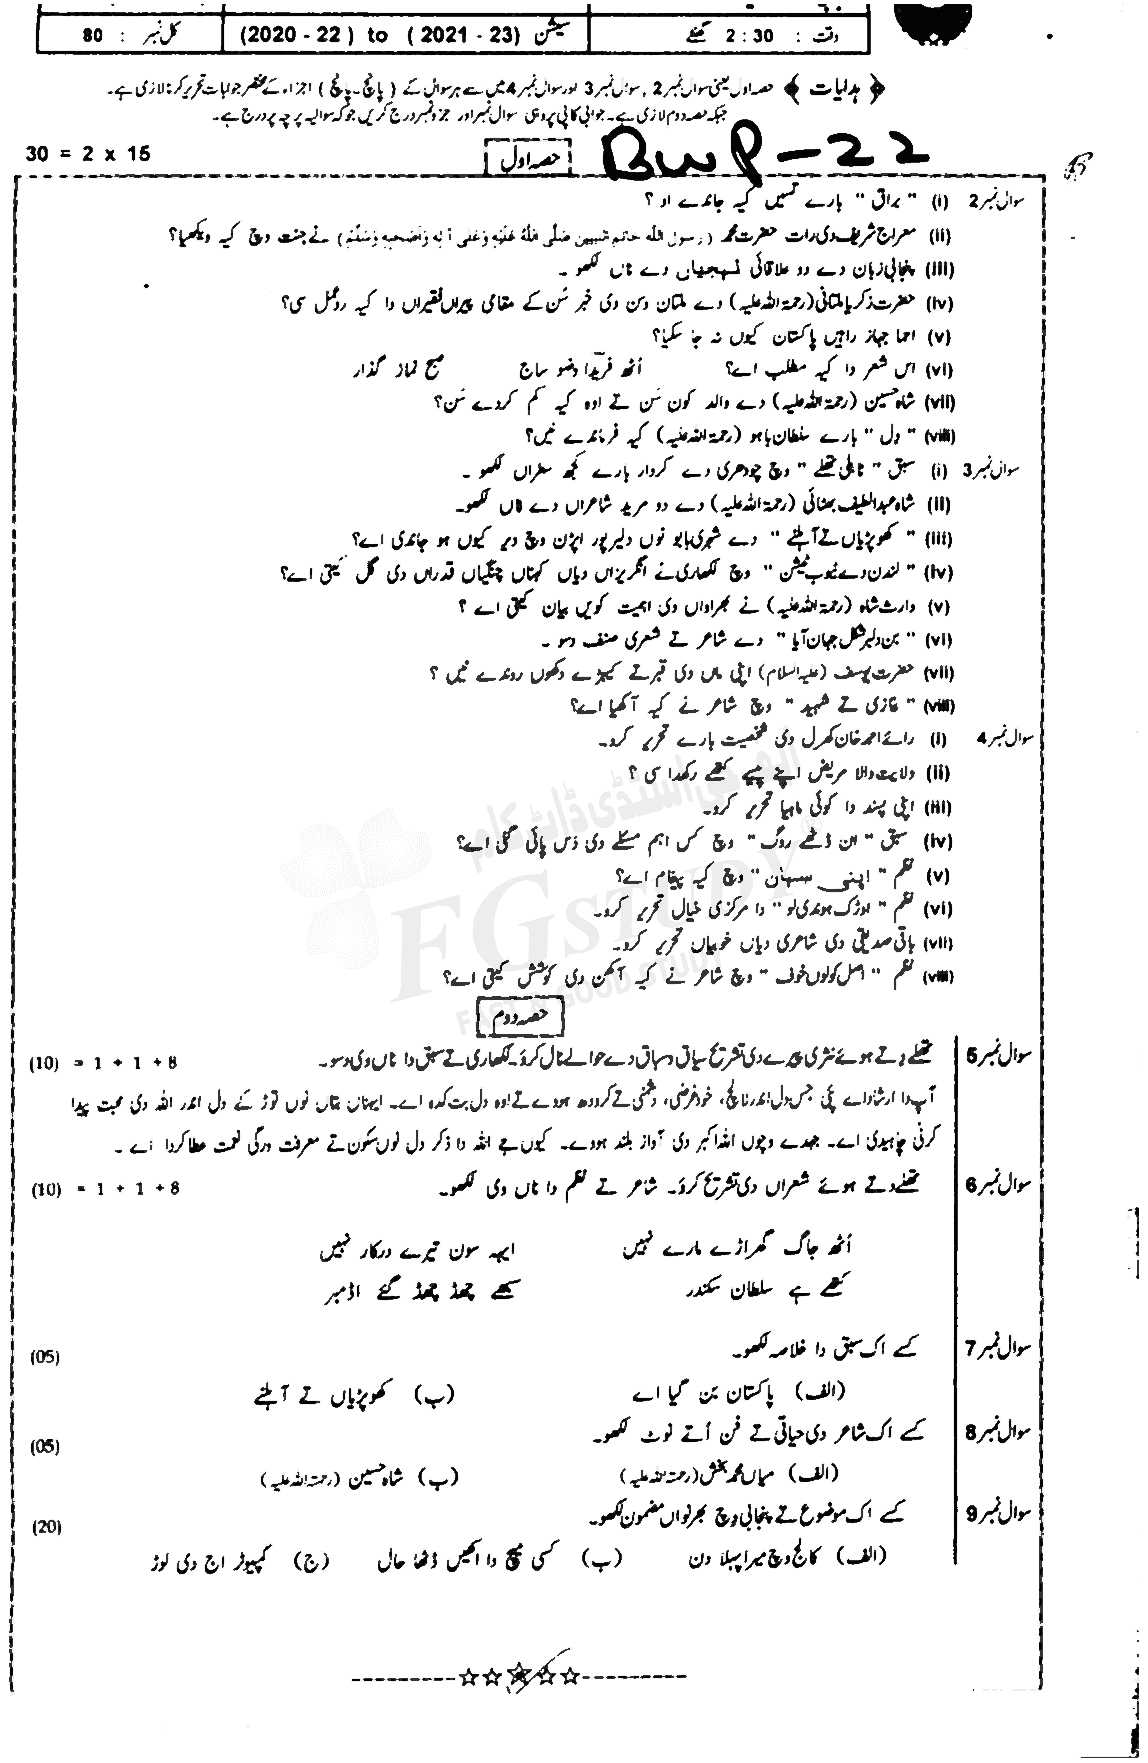 وقت : 2:30 گھنٹے سیشن (2020 - 22) to (2021 - 23) کل نمبر : 80
﴿ ہدایات ﴾ حصہ اول یعنی سوال نمبر 2 ، سوال نمبر 3 اور سوال نمبر 4 میں سے ہر سوال کے ( پانچ۔پانچ ) اجزاء کے مختصر جوابات تحریر کرنا لازمی ہے۔
جبکہ حصہ دوم لازمی ہے۔ جوابی کاپی پر وہی سوال نمبر اور جزو نمبر درج کریں جو کہ سوالیہ پرچہ پر درج ہے۔
BWP-22 حصہ اول 30 = 2 x 15
سوال نمبر 2 (i) " براق " بارے تسیں کیہ جاندے او ؟
(ii) معراج شریف دی رات حضرت محمد (رسول اللہ خاتم النبیین صلی اللہ علیہ وعلی آلہ واصحبہ وسلم) نے جنت وچ کیہ ویکھیا؟
(iii) پنجابی زبان دے دو علاقائی لہجیاں دے ناں لکھو ۔
(iv) حضرت ذکریا ملتانی (رحمۃ اللہ علیہ) دے ملتان ون دی خبر سُن کے مقامی پیراں فقیراں دا کیہ ردِعمل سی؟
(v) احمد جہاز راہیں پاکستان کیوں نہ جا سکیا؟
(vi) اس شعر دا کیہ مطلب اے؟ اُٹھ فریدا وضو ساج صبح نماز گذار
(vii) شاہ حسین (رحمۃ اللہ علیہ) دے والد کون سَن تے اوہ کیہ کم کردے سَن؟
(viii) " دل " بارے سلطان باہو (رحمۃ اللہ علیہ) کیہ فرماندے نیں؟
سوال نمبر 3 (i) سبق " ٹاہلی تھلے " وچ چودھری دے کردار بارے کجھ سطراں لکھو ۔
(ii) شاہ عبداللطیف بھٹائی (رحمۃ اللہ علیہ) دے دو مرید شاعراں دے ناں لکھو۔
(iii) " کھوپڑیاں تے آہلنے " دے شہری بابو نوں دلیر پور اپڑن وچ دیر کیوں ہو جاندی اے؟
(iv) " لندن دے ٹیوب ٹیشن " وچ لکھاری نے انگریزاں دیاں کہناں چنگیاں قدراں دی گل کیتی اے؟
(v) وارث شاہ (رحمۃ اللہ علیہ) نے بھراواں دی اہمیت کویں بیان کیتی اے ؟
(vi) " بن دلبر شکل جہان آیا " دے شاعر تے شعری صنف دسو ۔
(vii) حضرت یوسف (علیہ السلام) اپنی ماں دی قبر تے کیہڑے دکھوں روندے نیں ؟
(viii) " غازی تے شہید " وچ شاعر نے کیہ آکھیا اے؟
سوال نمبر 4 (i) رائے احمد خان کھرل دی شخصیت بارے تحریر کرو۔
(ii) ولایت والا مریض اپنے پیسے کتھے رکھدا سی ؟
(iii) اپنی پسند دا کوئی ماہیا تحریر کرو۔
(iv) سبق " ان ڈٹھے روگ " وچ کس اہم مسئلے دی دَس پائی گئی اے؟
(v) نظم " اپنی سہان " وچ کیہ پیغام اے؟
(vi) نظم " اوڑک ہوندی لو " دا مرکزی خیال تحریر کرو۔
(vii) باقی صدیقی دی شاعری دیاں خوبیاں تحریر کرو۔
(viii) نظم " اصل کولوں خوف " وچ شاعر نے کیہ آکھن دی کوشش کیتی اے؟
FG STUDY
حصہ دوم
سوال نمبر 5 تھلے دتے ہوئے نثری پیرے دی تشریح سیاق و سباق دے حوالے نال کرو۔ لکھاری تے سبق دا ناں وی دسو۔ (10) = 1 + 1 + 8
آپ دا ارشاد اے پئی جس دل اندر لالچ، خودغرضی، دشمنی تے کرودھ ہووے تے اوہ دل بت کدہ اے۔ ایہناں بتاں نوں توڑ کے دل اندر اللہ دی محبت پیدا
کرنی چاہیدی اے۔ جیہدے وچوں اللہ اکبر دی آواز بلند ہووے۔ کیوں جے اللہ دا ذکر دل نوں سکون تے معرفت ورگی نعمت عطا کردا اے ۔
سوال نمبر 6 تھلے دتے ہوئے شعراں دی تشریح کرو۔ شاعر تے نظم دا ناں وی لکھو۔ (10) = 1 + 1 + 8
اُٹھ جاگ گھراڑے مارے نہیں ایہہ سون تیرے درکار نہیں
کتھے ہے سلطان سکندر سبھے چھڈ چھڈ گئے اڈمبر
سوال نمبر 7 کسے اک سبق دا خلاصہ لکھو۔ (05)
(الف) پاکستان بن گیا اے (ب) کھوپڑیاں تے آہلنے
سوال نمبر 8 کسے اک شاعر دی حیاتی تے فن اُتے نوٹ لکھو۔ (05)
(الف) میاں محمد بخش (رحمۃ اللہ علیہ) (ب) شاہ حسین (رحمۃ اللہ علیہ)
سوال نمبر 9 کسے اک موضوع تے پنجابی وچ بھرواں مضمون لکھو۔ (20)
(الف) کالج وچ میرا پہلا دن (ب) کسی میچ دا اکھیں ڈٹھا حال (ج) کمپیوٹر اج دی لوڑ